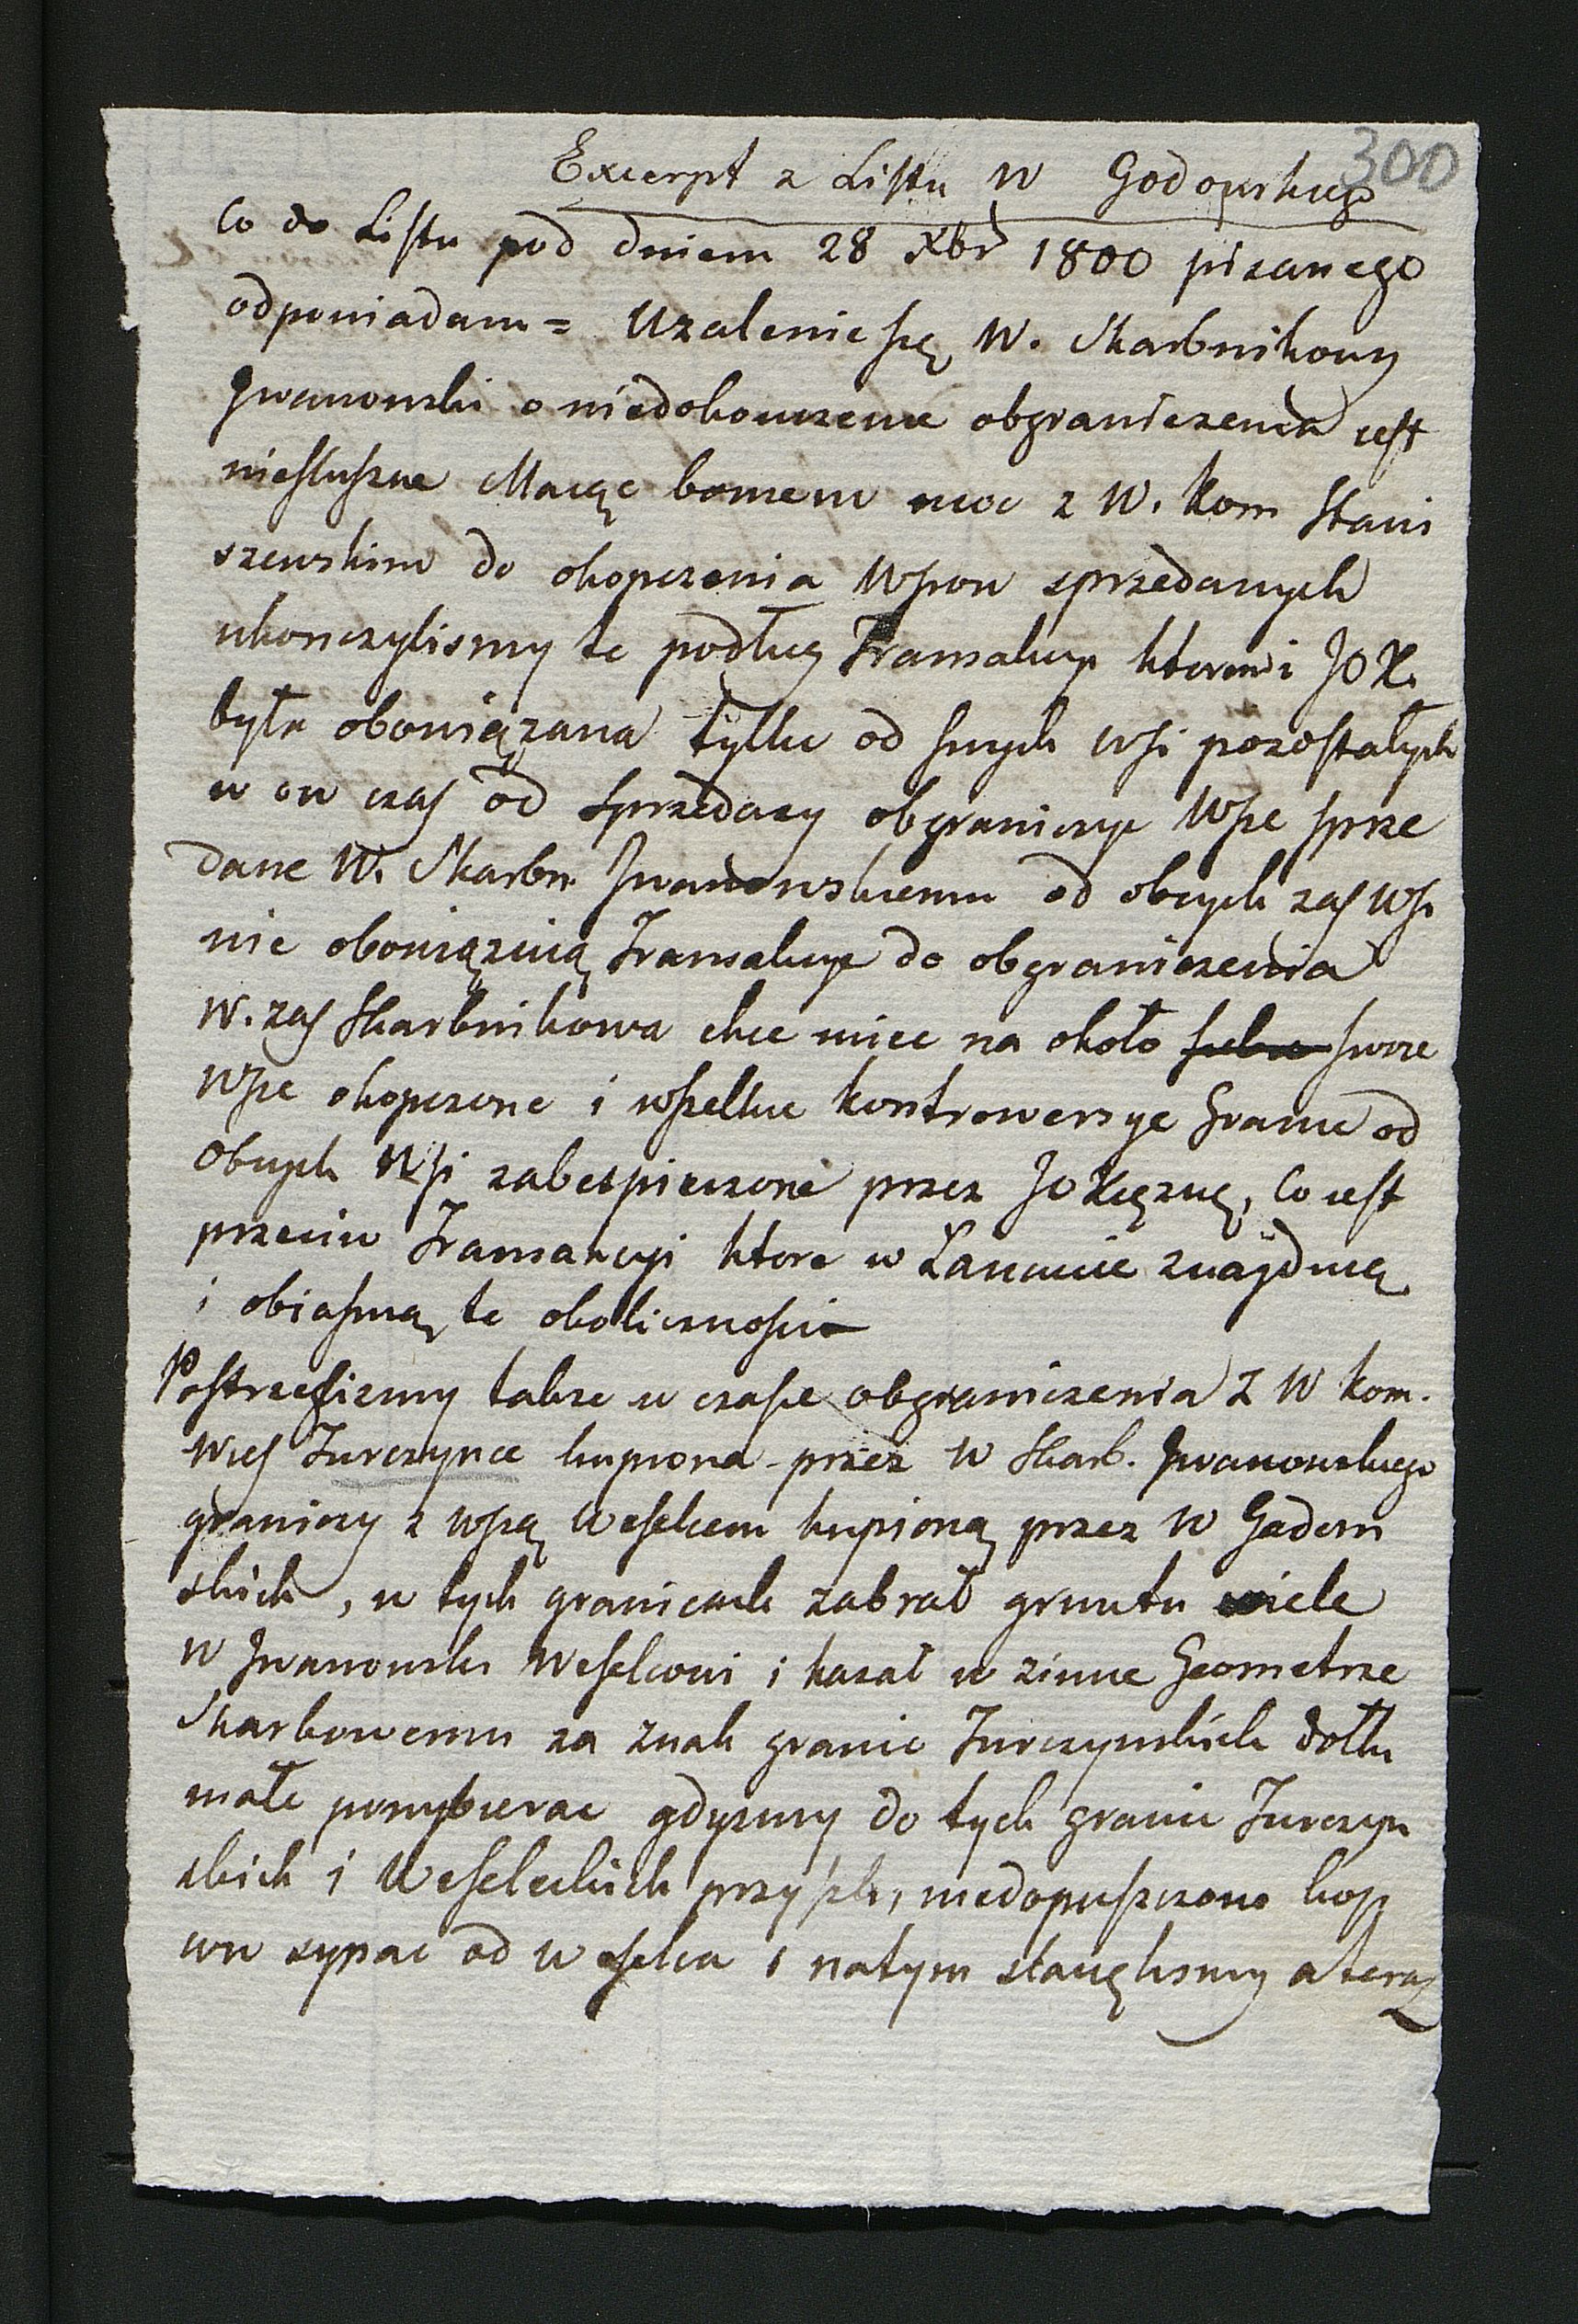 300
Excerpt z Listu W Godowskiego
Co do Listu pod dniem 28 Xbr 1800 pisanego
odpowiadam = Uzalenie się W. Skarbnikowy
Jwanowski o niedokonczenie obgraniczenia iest
niesłuszne Maiąc bowiem moc z W. Kom Stani
szewskim do okopczenia Wsiow sprzedanych
ukonczylismy te podług Transakcyi ktoremi JO X.
była obowiązana tylko od swych wsi pozostałych
w on czas od sprzedazy obgraniczyc Wsie sprze
dane W. Skarbn Jwanowskiemu od obcych zas Wsi
nie obowiązuią Transakcye do obgraniczenia
W. zas Skarbnikowa chce miec na około swoie
Wsie okopczone i wszelkie kontrowersye Granic od
Obcych Wsi zabespieczone przez JO Xiężnę, Co iest
przeciw Transakcyi ktore w Łancucie znayduią
i obiasnią te okolicznosci
Postrzeglismy takze w czasie obgraniczenia z W Kom.
Wies Jurczynce kupiona przez W Skarb. Jwanowskiego
graniczy z wsią Weselcem kupioną przez W Gadom
skich, w tych granicach zabrał gruntu wiele
W Jwanowski Weselcowi i kazał w zimie Geometrze
Skarbowemu za znak granic Jurczynskich dołki
małe powybierac gdysmy do tych granic Jurczyn
skich i Weseleckich przyszli, niedopuszczono kop
cow sypac od Weselca i natym stanęlismy a teraz